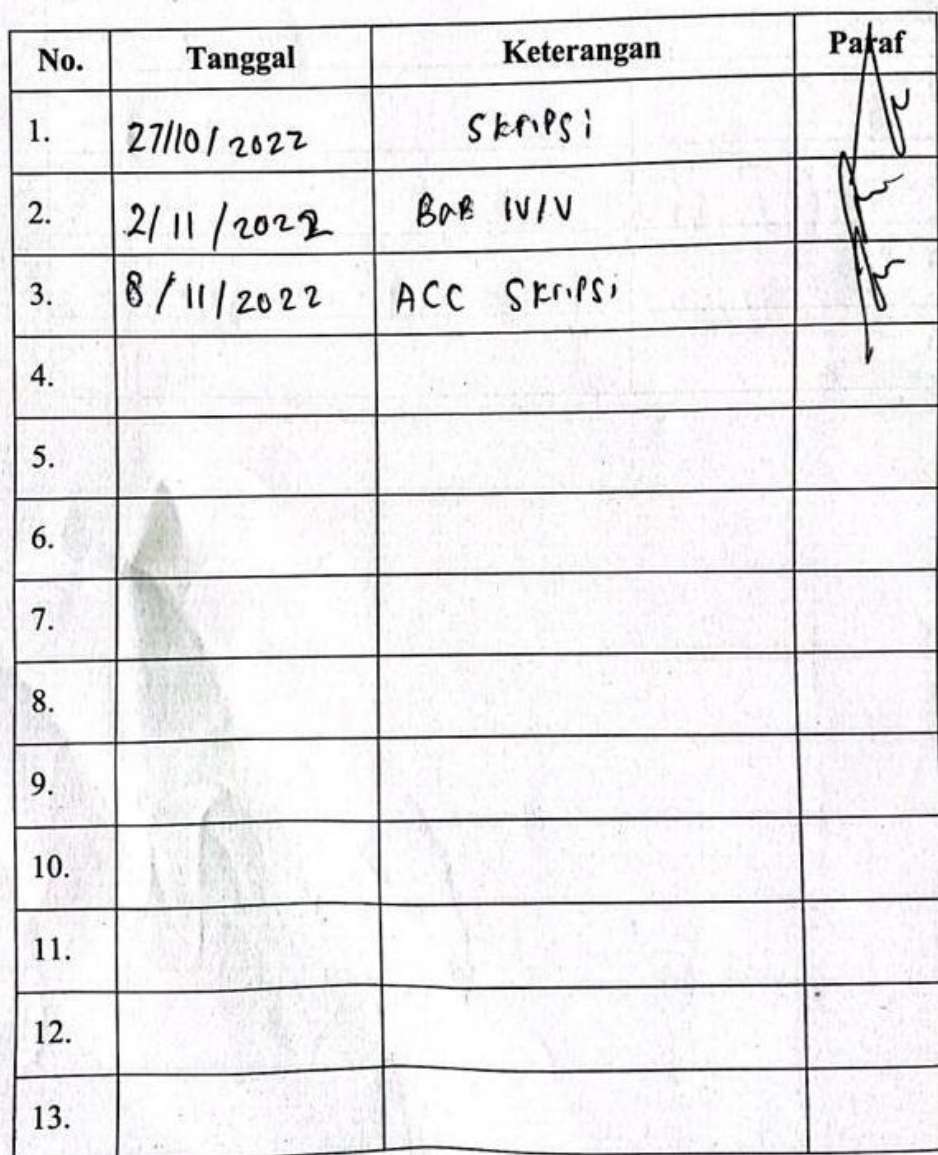 No. Tanggal Keterangan Paraf
1. 27/10/2022 Skripsi
2. 2/11/2022 BaB IV/V
3. 8/11/2022 ACC Skripsi
4.
5.
6.
7.
8.
9.
10.
11.
12.
13.